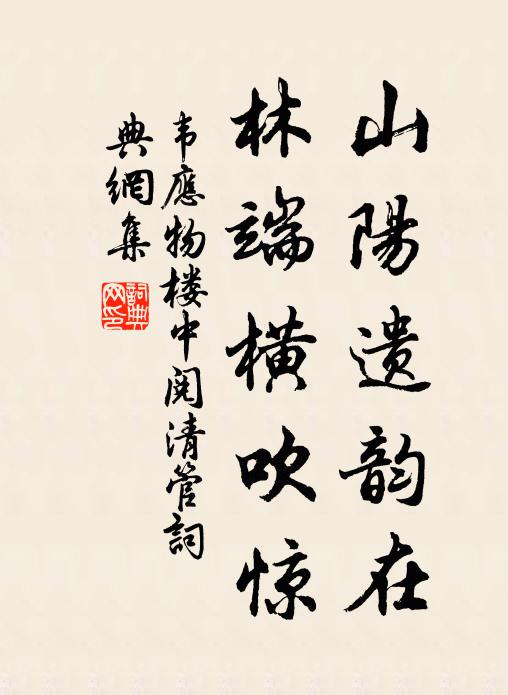 山陽遺韵在
林端横吹惊
韦應物楼中阅清管詞
典網集
詞典网印